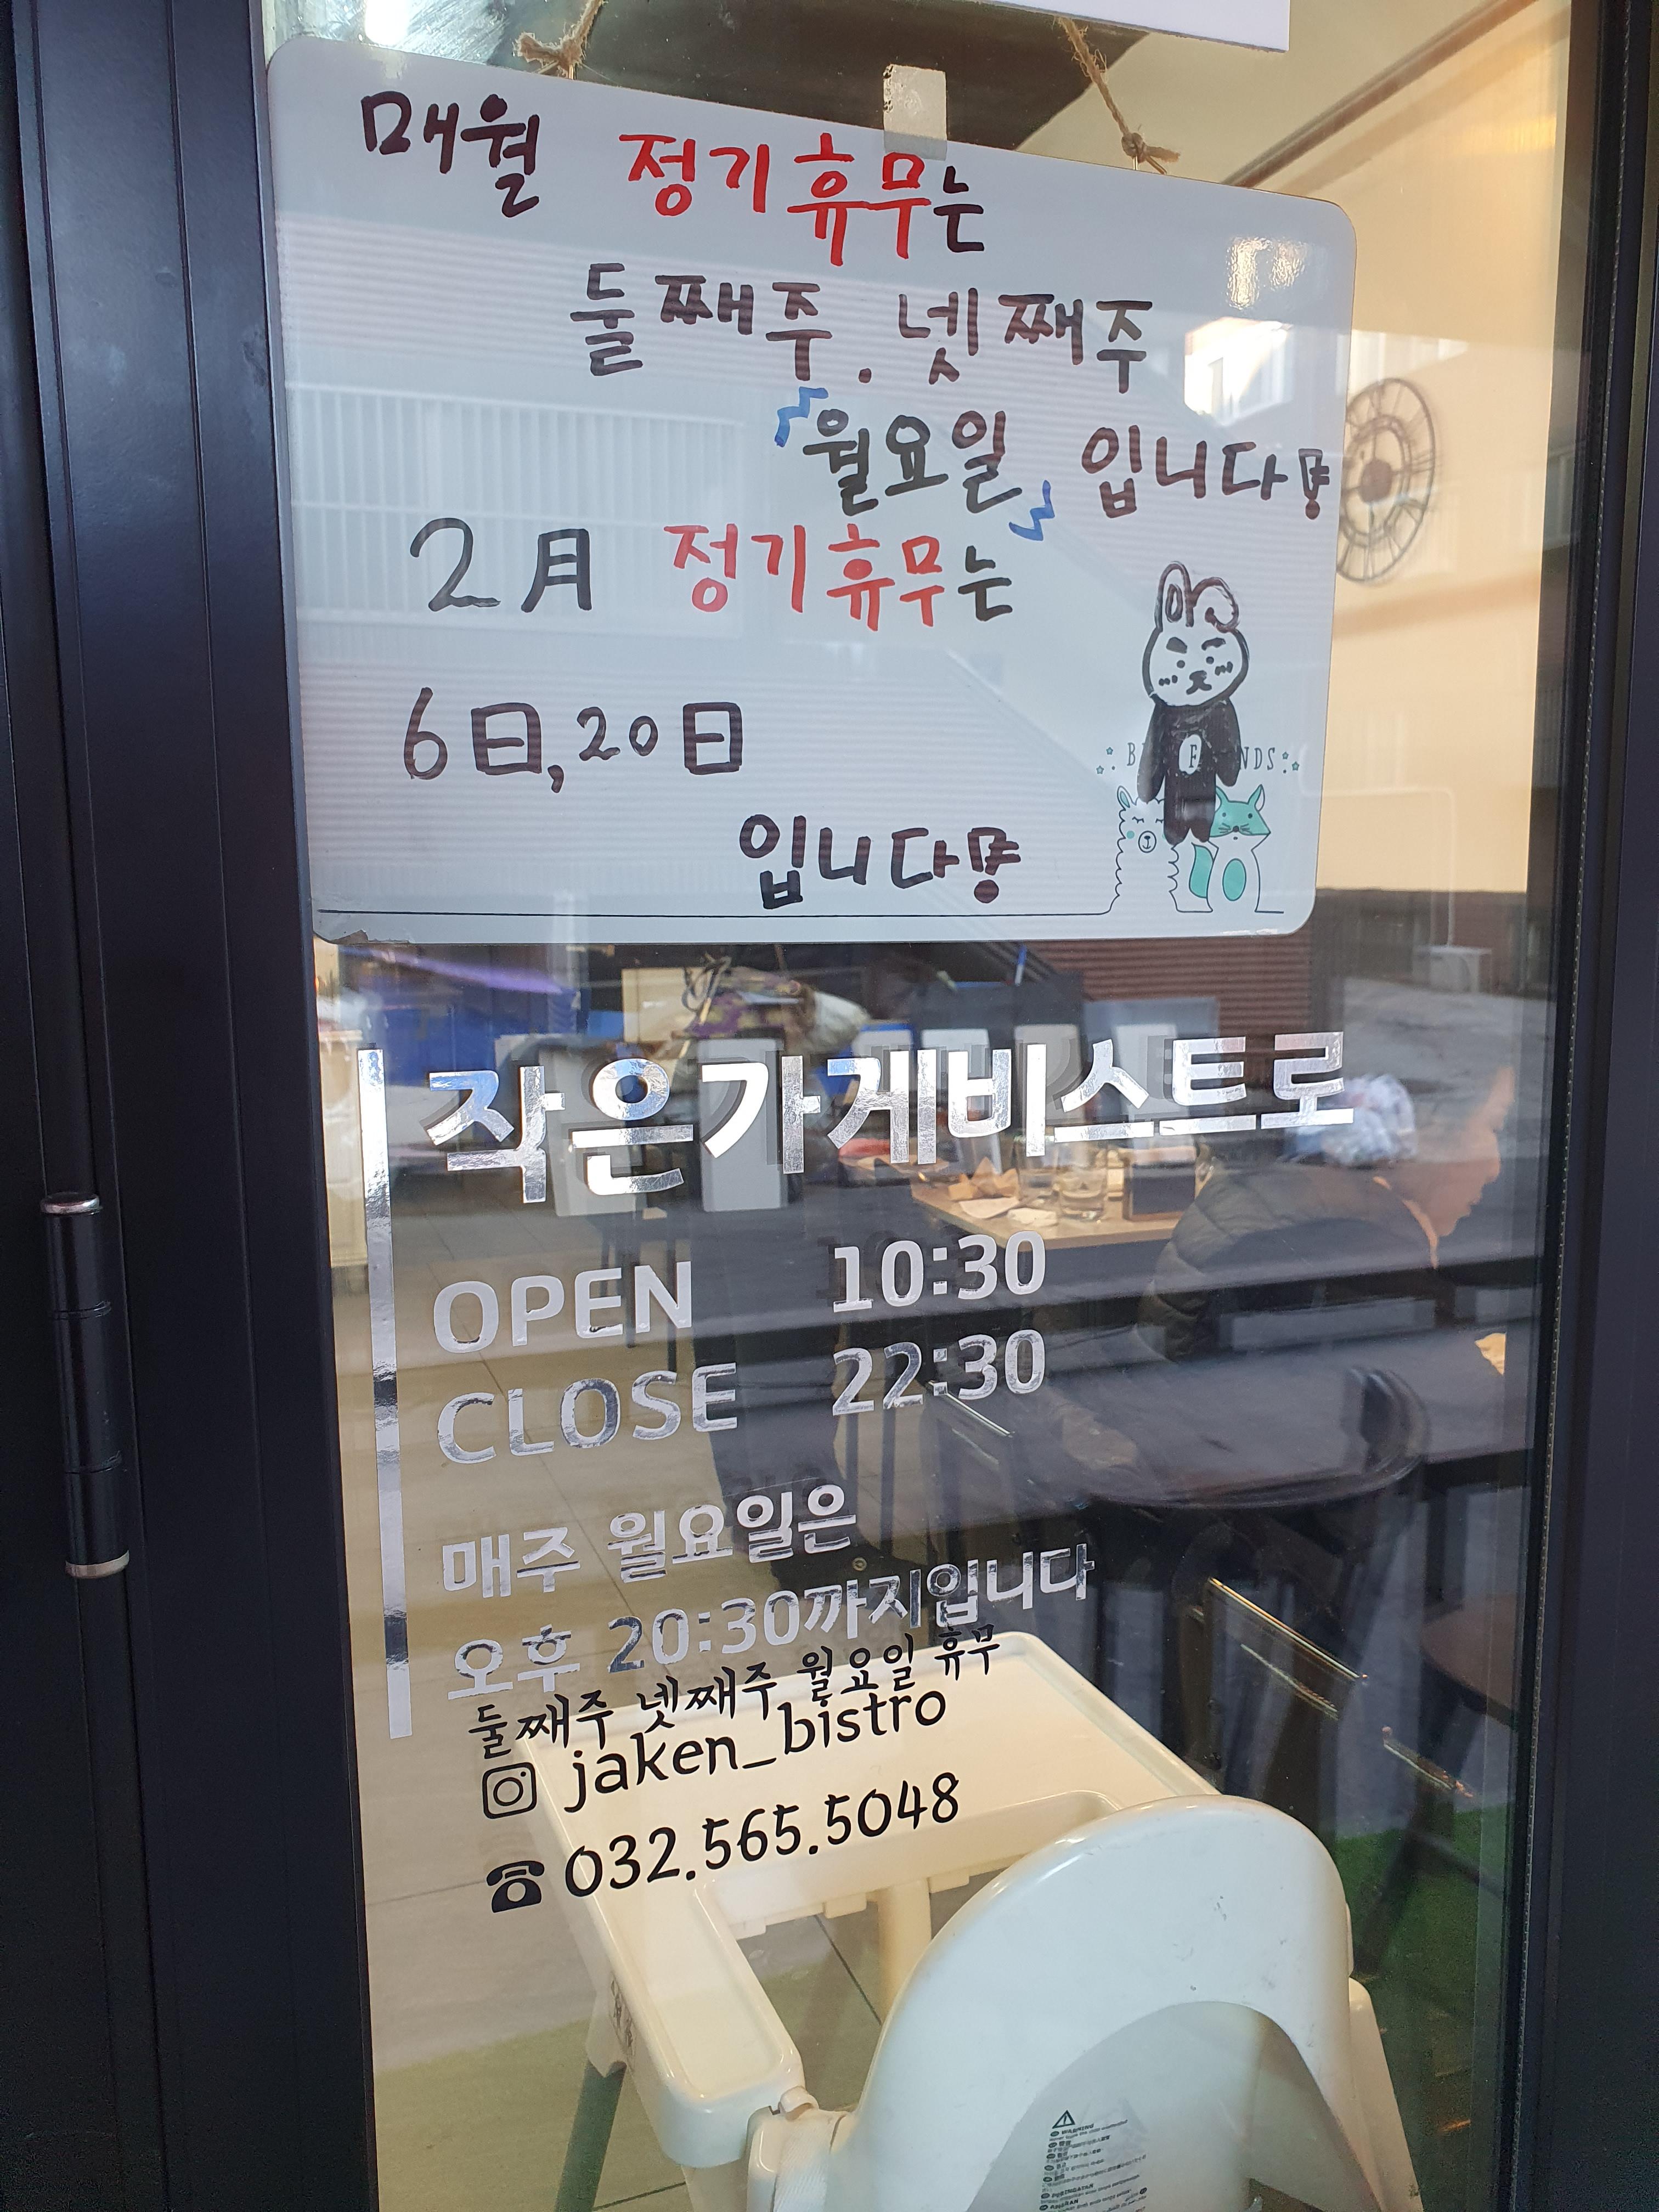 매월 정기휴무는
둘째주. 넷째주
월요일 입니다!
2月 정기휴무는
6日, 20日
입니다!
작은가게비스트로
OPEN 10:30
CLOSE 22:30
매주 월요일은
오후 20:30까지입니다
둘째주 넷째주 월요일 휴무
jaken_bistro
032.565.5048
WARNING